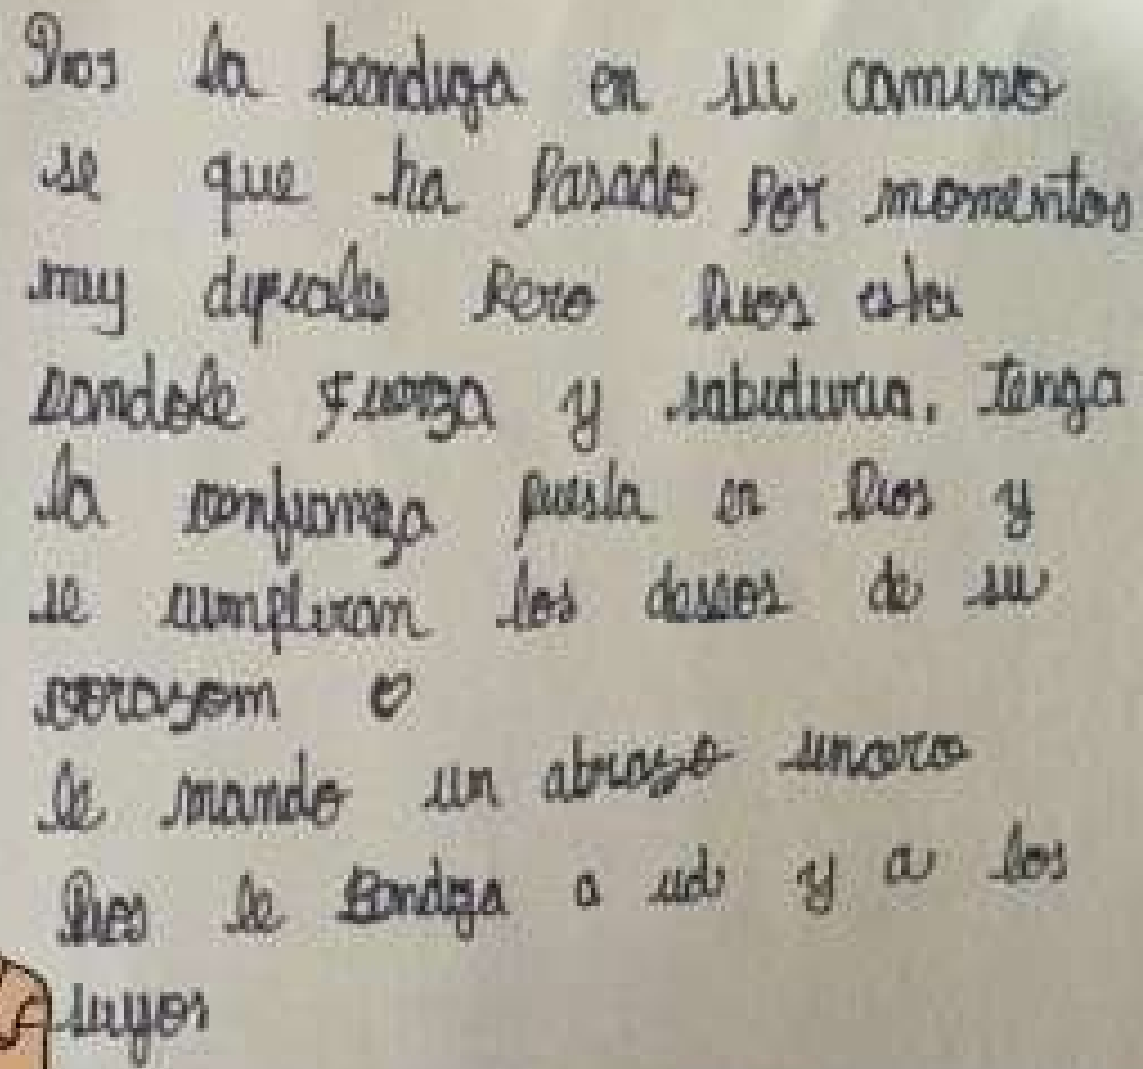 Dios la bendiga en su camino
se que ha Pasado Por momentos
muy dificiles Pero Dios esta
dandole Fuerza y sabiduria, tenga
la confianza puesta en Dios y
se cumpliran los deseos de su
corazom ♡
le mando un abrazo sincero
Dios le Bendiga a ud y a los
suyos